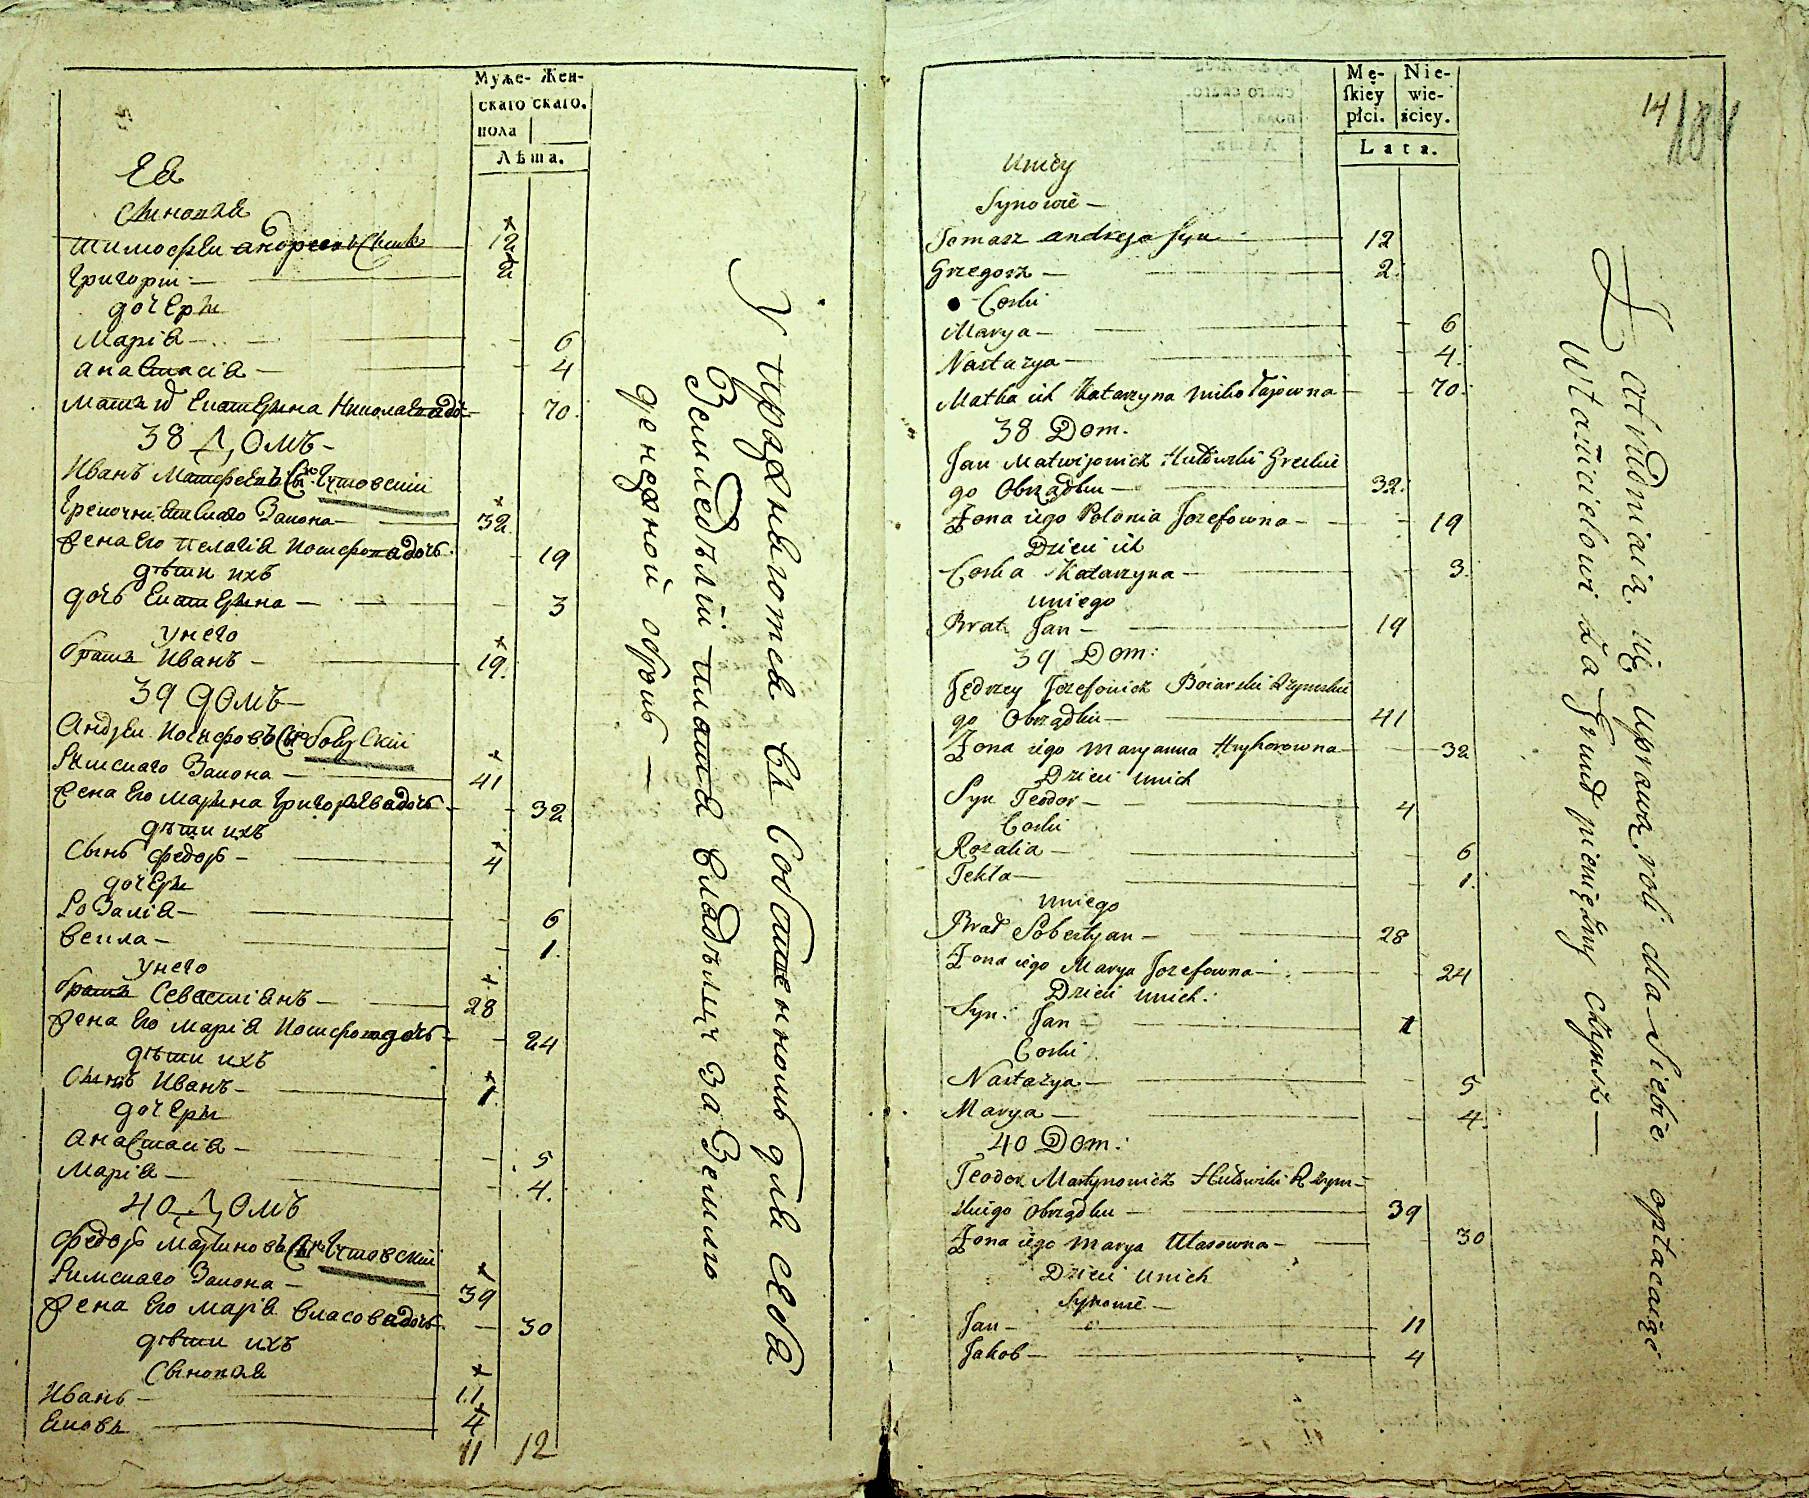 Муже- Жен-
скаго скаго.
пола
Лѣта.
Ея
Сыновья
Тимофей Андреевъ Сынъ 12
Григорій — 2
дочери
Марія — 6
Анастасія — 4
Мать их Екатерина Николаева дочь — 70.
38 Домъ —
Иванъ Матфеевъ Сынъ
Закона — 32
Жена Его Пелагія Іосифова дочь — 19
дѣти ихъ
дочь Екатерина — 3
у него
братъ Иванъ — 19.
39 домъ —
Андрей Іосифовъ Сынъ
Римскаго Закона — 41
Жена Его Марина Григорьева дочь — 32
дѣти ихъ
Сынъ Федоръ — 4
дочери
Розалія — 6
Текла — 1.
у него
братъ Севастіанъ — 28
Жена Его Марія Іосифова дочь — 24
дѣти ихъ
Сынъ Иванъ — 1.
дочери
Анастасія — 5
Марія — 4.
40 Домъ
Федоръ Мартиновъ Сынъ
Римскаго Закона — 39
Жена Его Марія Власова дочь — 30
дѣти ихъ
Сыновья
Иванъ — 11
Яковъ — 4
11 12
Упражняются въ Собственномъ для себя
Земледѣліи платя владѣльцу за Землю
денежной оброкъ —
Mę- Nie-
ſkiey wie-
płci. ściey.
Lata.
14
184
Unięy
Synowie —
Tomasz Andrzeja Syn 12
Grzegorz — 2.
Corki
Marya — 6
Nastazya — 4.
Matka ich Katarzyna Mikołajowna — 70.
38 Dom.
Jan Matwijowicz Greckie
go Obrządku — 32.
Zona iego Polonia Jozefowna — 19
Dzieci ich
Corka Katarzyna — 3.
u niego
Brat Jan — 19
39 Dom:
Jędrzey Jozefowicz Boiarski Rzymskie
go Obrządku — 41
Zona iego Maryanna Hryhorowna — 32
Dzieci u nich
Syn Teodor — 4
Corki
Rozalia — 6
Tekla — 1.
u niego
Brat Sobestyan — 28
Zona iego Marya Jozefowna — 24
Dzieci u nich:
Syn. Jan — 1
Corki
Nastazya — 5
Marya — 4.
40 Dom:
Teodor Martynowicz Rzym-
skiego Obrządku — 39
Zona iego Marya Ułasowna — 30
Dzieci u nich
Synowie —
Jan — 11
Jakob — 4
Zatrudniaią się uprawą roli dla Siebie opłacaiąc
Właścicielowi za Grunt pieniężny Czynsz —